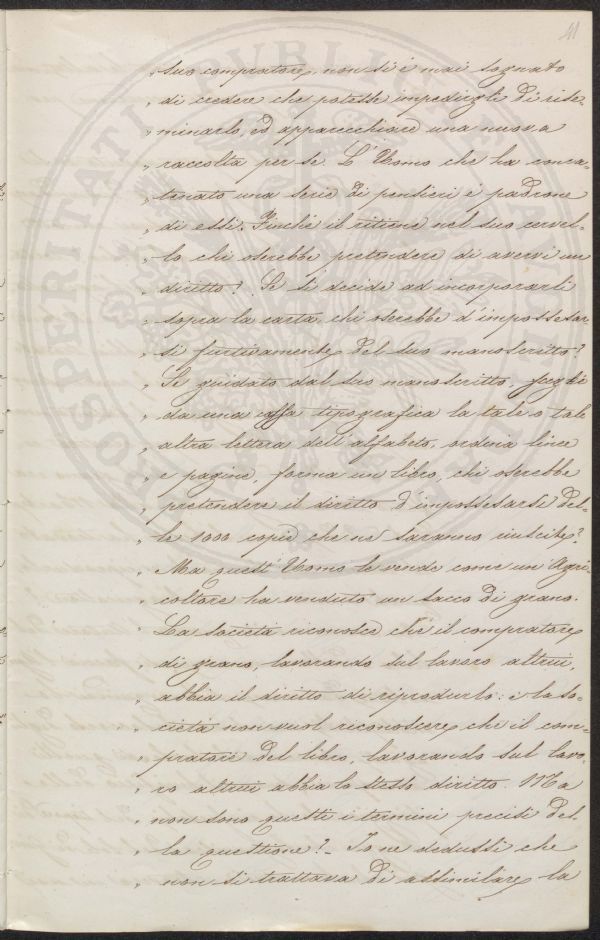 41
„ suo compratore, non si è mai sognato
„ di credere che potesse impedirgli di rise-
„ minarlo, ed apparecchiare una nuova
„ raccolta per se. L'Uomo che ha conca-
„ tenato una serie di pensieri è padrone
„ di essi. Finchè il ritiene nel suo cervel-
„ lo chi oserebbe pretendere di avervi un
„ diritto? Se si decide ad incorporarli
„ sopra la carta chi oserebbe d'impossessar
„ si furtivamente del suo manoscritto?
„ Se guidato dal suo manoscritto, sceglie
„ da una cassa tipografica la tale o tale
„ altra lettera dell'alfabeto, ordina linee
„ e pagine, forma un libro, chi oserebbe
„ pretendere il diritto d'impossessarsi del-
„ le 1000 copie che ne saranno uscite?
„ Ma quest'Uomo le vende come un Agri-
„ coltore ha venduto un sacco di grano.
„ La società riconosce che il compratore
„ di grano, lavorando sul lavoro altrui,
„ abbia il diritto di riprodurlo: e la so-
„ cietà non vuol riconoscere che il com-
„ pratore del libro, lavorando sul lavo-
„ ro altrui abbia lo stesso diritto. Ma
„ non sono questi i termini precisi del
„ la questione? _ Io ne dedussi che
„ non si trattava di assimilare la
PROSPERITATI PUBLICAE